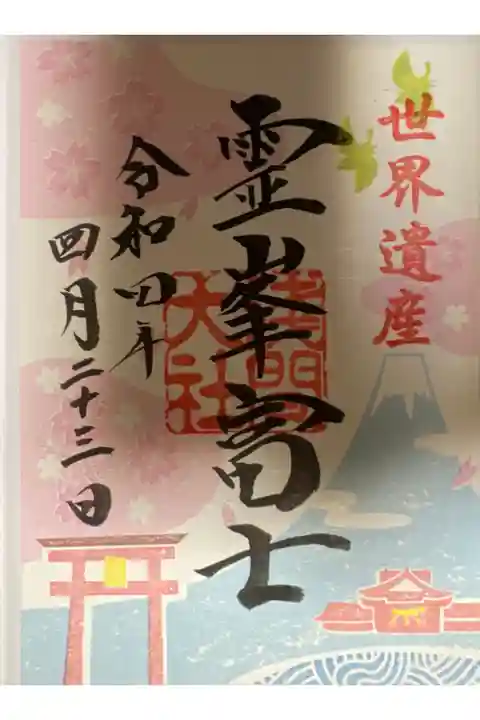 世界遺産
霊峯富士
浅間
大社
令和四年
四月二十三日